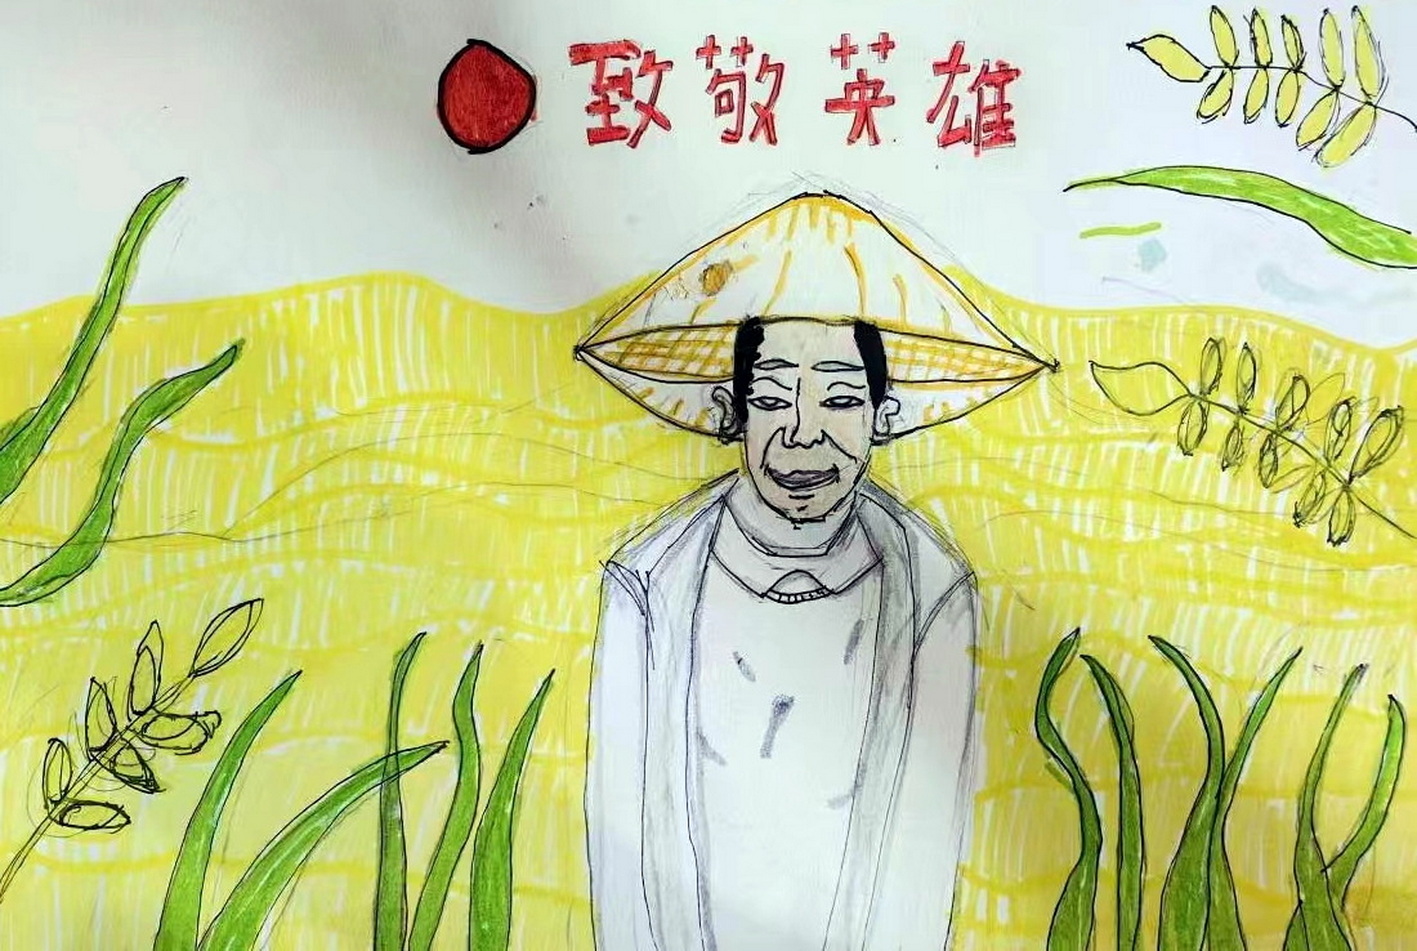 致敬英雄